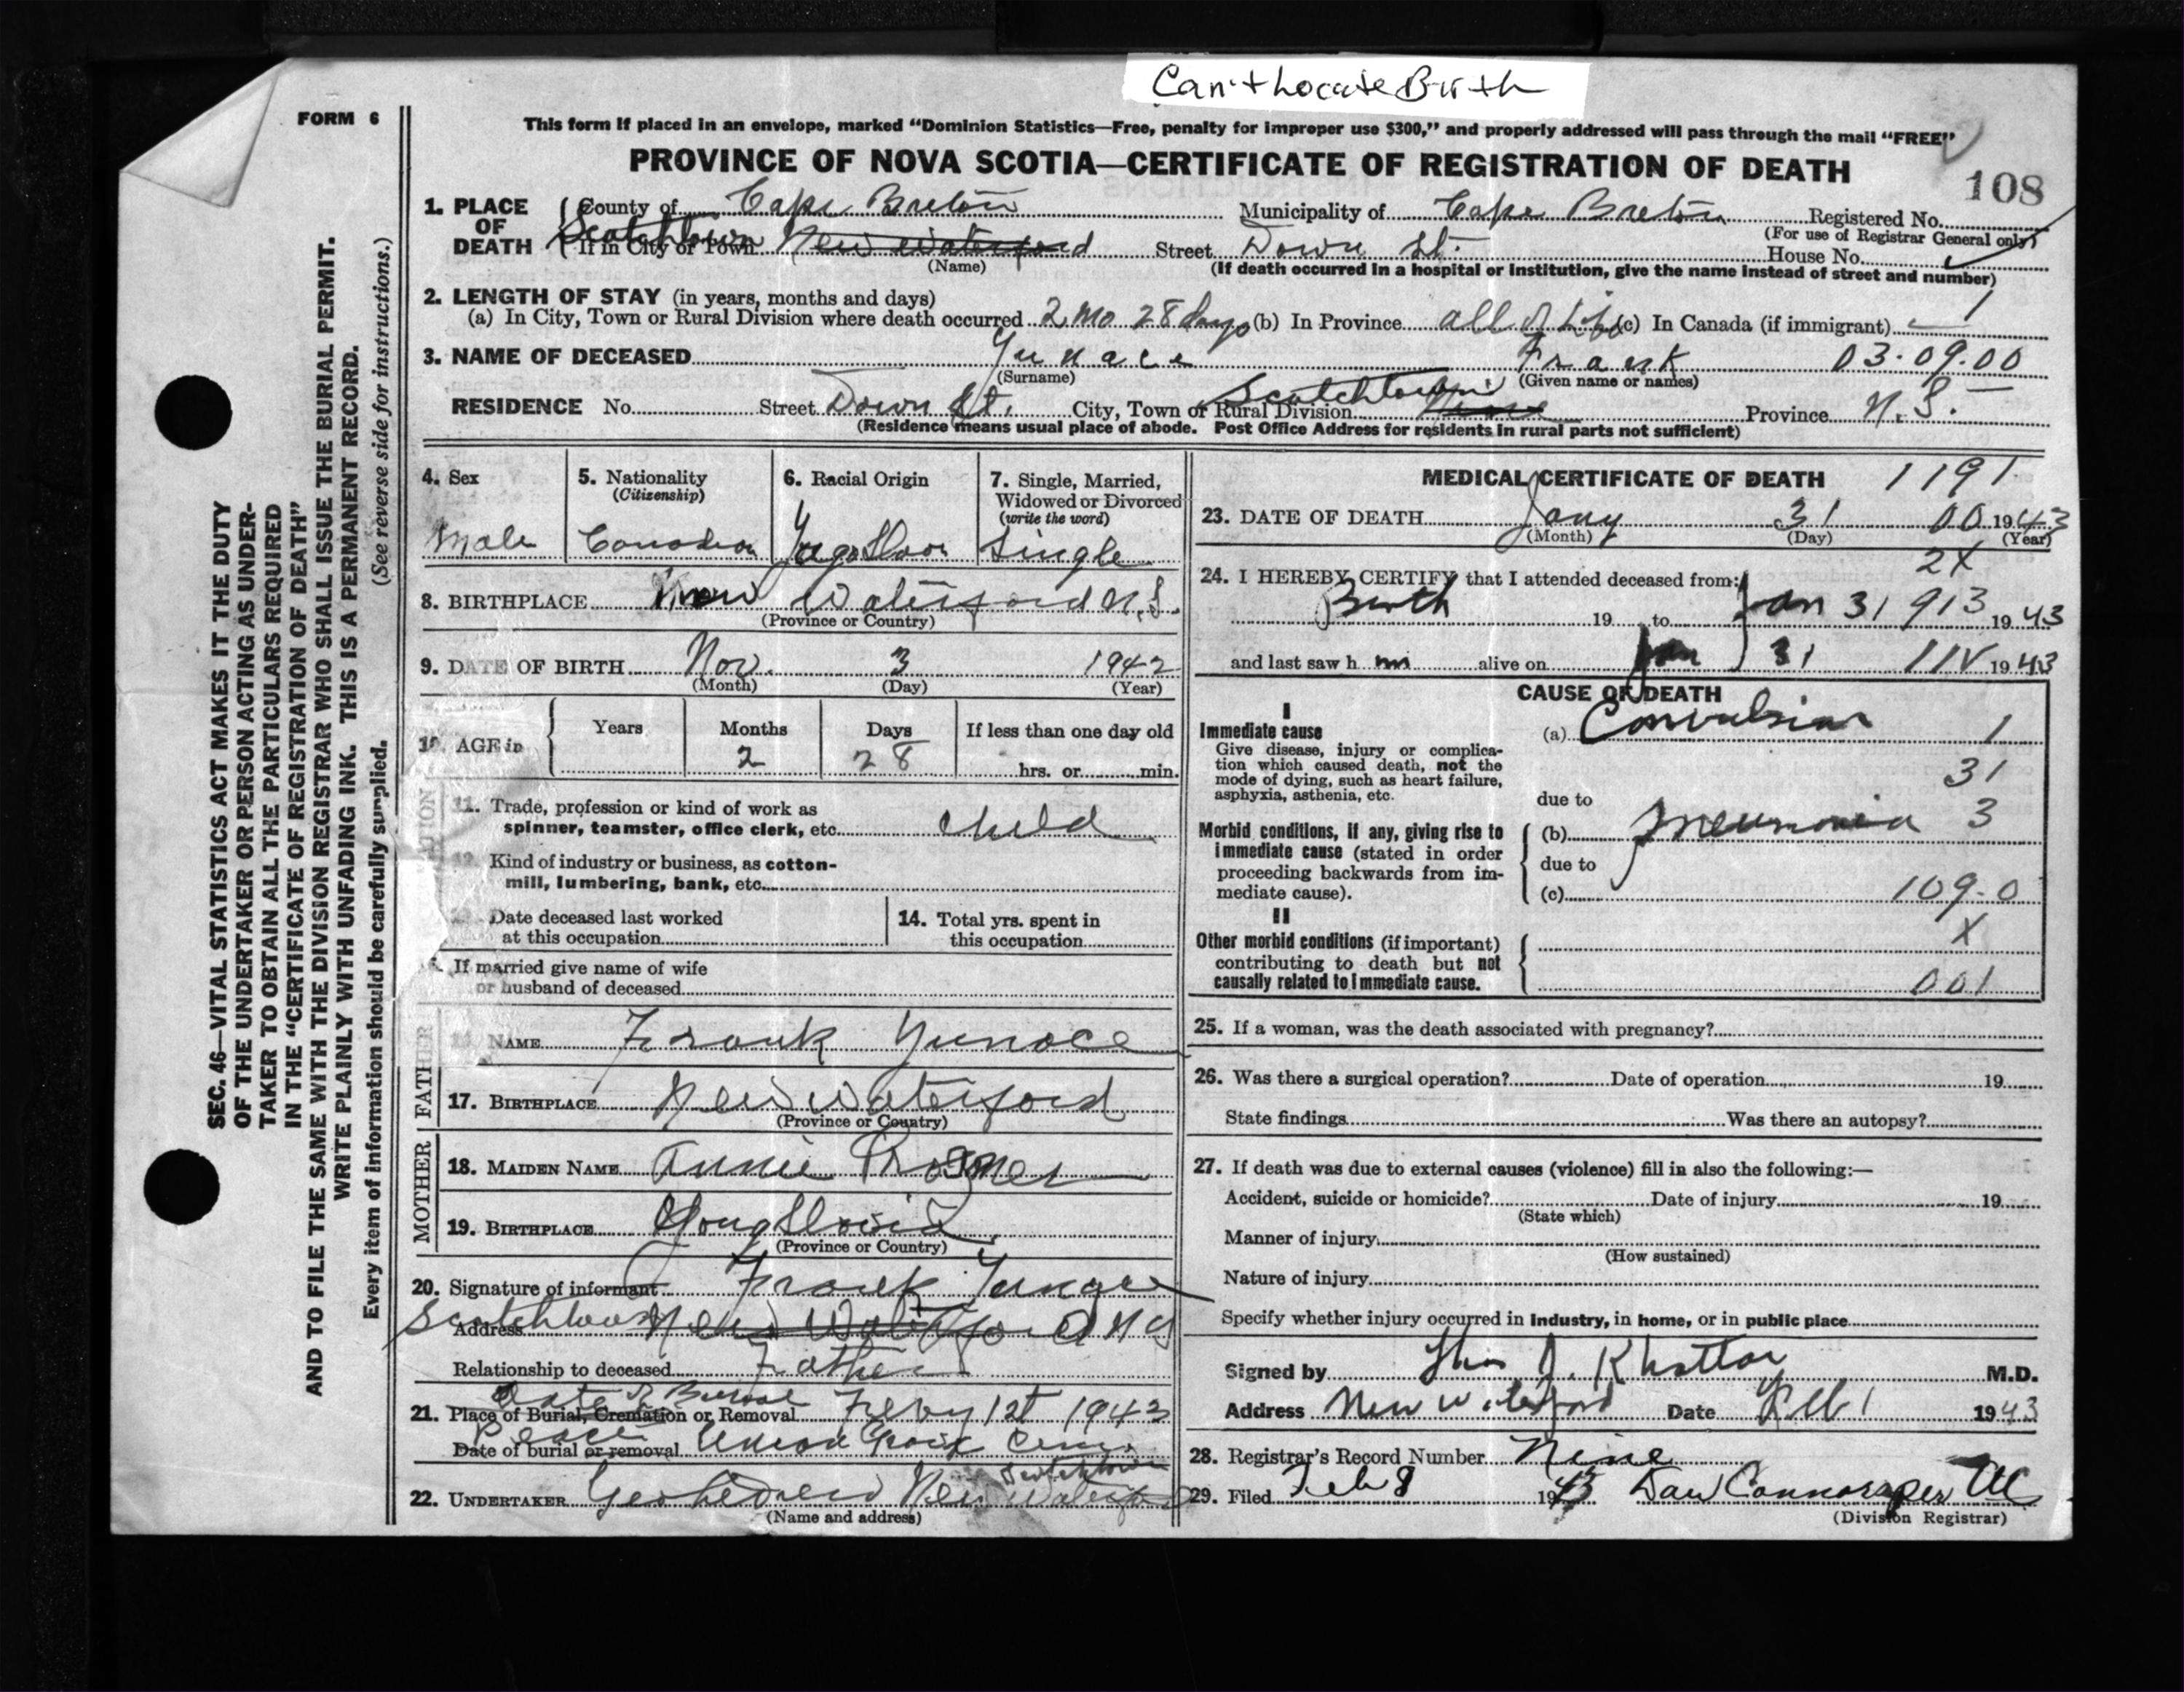 Can't Locate Birth
FORM 6
This form if placed in an envelope, marked "Dominion Statistics—Free, penalty for improper use $300," and properly addressed will pass through the mail "FREE"
PROVINCE OF NOVA SCOTIA—CERTIFICATE OF REGISTRATION OF DEATH
108
1. PLACE OF DEATH County of Cape Breton Municipality of Cape Breton Registered No.
(For use of Registrar General only)
Scotchtown If in City or Town New Waterford Street Down St. House No.
(Name) (If death occurred in a hospital or institution, give the name instead of street and number)
2. LENGTH OF STAY (in years, months and days) 1
(a) In City, Town or Rural Division where death occurred 2 Mo 28 days (b) In Province all of Life (c) In Canada (if immigrant)
3. NAME OF DECEASED Yunace Frank 03.09.00
(Surname) (Given name or names)
RESIDENCE No. Street Down St. City, Town or Rural Division Scotchtown Province N.S.
(Residence means usual place of abode. Post Office Address for residents in rural parts not sufficient)
4. Sex Male
5. Nationality (Citizenship) Canadian
6. Racial Origin
7. Single, Married, Widowed or Divorced (write the word) Single
8. BIRTHPLACE New Waterford N.S.
(Province or Country)
9. DATE OF BIRTH Nov. 3 1942
(Month) (Day) (Year)
10. AGE in Years Months 2 Days 28 If less than one day old hrs. or min.
11. Trade, profession or kind of work as spinner, teamster, office clerk, etc. child
12. Kind of industry or business, as cotton-mill, lumbering, bank, etc.
13. Date deceased last worked at this occupation
14. Total yrs. spent in this occupation
If married give name of wife or husband of deceased
FATHER
NAME Frank Yunace
17. BIRTHPLACE New Waterford
(Province or Country)
MOTHER
18. MAIDEN NAME Annie
19. BIRTHPLACE
(Province or Country)
20. Signature of informant Frank Yunace
Address Scotchtown New Waterford N S
Relationship to deceased Father
Date of Burial
21. Place of Burial, Cremation or Removal Feby 1st 1943
Place
Date of burial or removal Union Cem.
Scotchtown
22. UNDERTAKER New Waterford
(Name and address)
MEDICAL CERTIFICATE OF DEATH 1191
23. DATE OF DEATH Jany 31 00 1943
(Month) (Day) (Year)
2X
24. I HEREBY CERTIFY that I attended deceased from:
Birth 19 to Jan 31 913 1943
and last saw h m alive on Jan 31 11V 1943
CAUSE OF DEATH
I
Immediate cause (a) Convulsion 1
Give disease, injury or complication which caused death, not the mode of dying, such as heart failure, asphyxia, asthenia, etc. 31
due to
Morbid conditions, if any, giving rise to immediate cause (stated in order proceeding backwards from immediate cause). (b) Pneumonia 3
due to
(c) 109-0
II X
Other morbid conditions (if important) contributing to death but not causally related to immediate cause. 001
25. If a woman, was the death associated with pregnancy?
26. Was there a surgical operation? Date of operation 19
State findings Was there an autopsy?
27. If death was due to external causes (violence) fill in also the following:—
Accident, suicide or homicide? Date of injury 19
(State which)
Manner of injury
(How sustained)
Nature of injury
Specify whether injury occurred in industry, in home, or in public place
Signed by Thos J. Khattar M.D.
Address New Waterford Date Feb 1 1943
28. Registrar's Record Number Nine
29. Filed Feb 8 1943 Dan
(Division Registrar)
SEC. 46—VITAL STATISTICS ACT MAKES IT THE DUTY
OF THE UNDERTAKER OR PERSON ACTING AS UNDER-
TAKER TO OBTAIN ALL THE PARTICULARS REQUIRED
IN THE "CERTIFICATE OF REGISTRATION OF DEATH"
AND TO FILE THE SAME WITH THE DIVISION REGISTRAR WHO SHALL ISSUE THE BURIAL PERMIT.
WRITE PLAINLY WITH UNFADING INK. THIS IS A PERMANENT RECORD.
Every item of information should be carefully supplied. (See reverse side for instructions.)